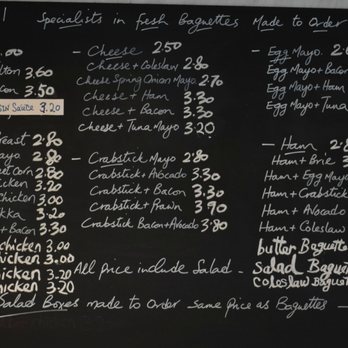 Specialists in Fresh Baguettes Made to Order
.00
lton 3.60
con 3.50
sin Sauce 3.20
reast 2.80
ayo 2.80
eet Corn 2.80
icken 3.20
chicken 3.00
kka 3.20
+ Bacon 3.30
chicken 3.00
chicken 3.00
chicken 3.20
chicken 3.20
- Cheese 2.50
Cheese + Coleslaw 2.80
Cheese Spring Onion Mayo 2.70
Cheese + Ham 3.30
Cheese + Bacon 3.30
Cheese + Tuna Mayo 3.20
- Crabstick Mayo 2.80
Crabstick + Avocado 3.30
Crabstick + Bacon 3.30
Crabstick + Prawn 3.90
Crabstick Bacon + Avocado 3.80
- Egg Mayo 2.
Egg Mayo + Bacon
Egg Mayo + Ham
Egg Mayo + Tuna
- Ham 2.8
Ham + Brie 3.
Ham + Egg Mayo
Ham + Crabstick
Ham + Avocado
Ham + Coleslaw
butter Baguette
Salad Baguet
Coleslaw Baguet
All price include Salad -
Salad Boxes made to Order same Price as Baguettes -